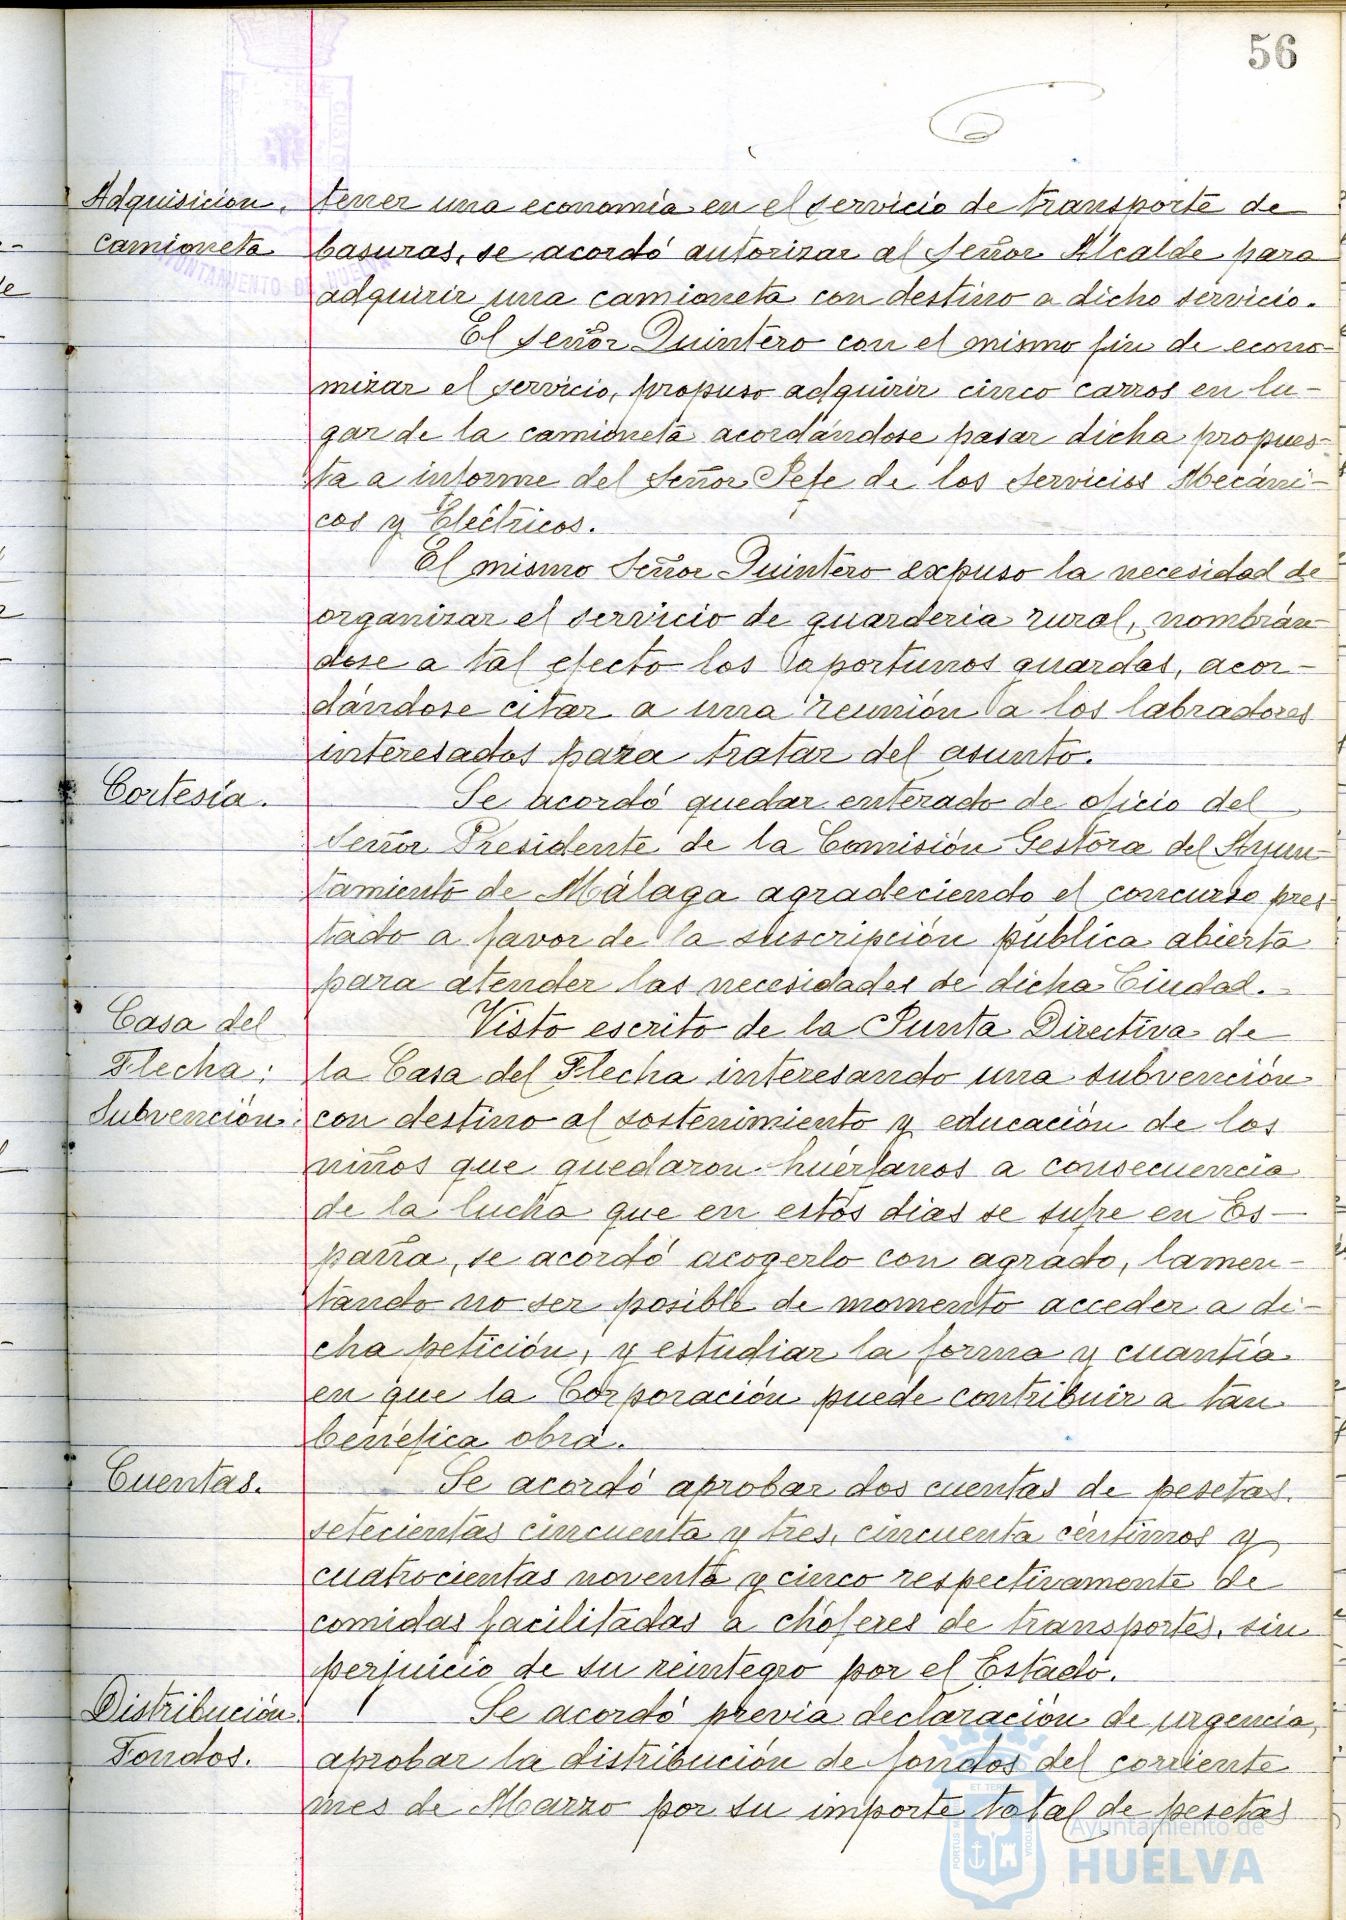 56
Adquisición.
camioneta
tener una economía en el servicio de transporte de
basuras, se acordó autorizar al Señor Alcalde para
adquirir una camioneta con destino a dicho servicio.
El Señor Quintero con el mismo fin de econo-
mizar el servicio, propuso adquirir cinco carros en lu-
gar de la camioneta acordándose pasar dicha propues-
ta a informe del Señor Jefe de los Servicios Mecáni-
cos y Eléctricos.
El mismo Señor Quintero expuso la necesidad de
organizar el servicio de guarderia rural, nombrán-
dose a tal efecto los oportunos guardas, acor-
dándose citar a una reunión a los labradores
interesados para tratar del asunto.
Cortesía.
Se acordó quedar enterado de oficio del
Señor Presidente de la Comisión Gestora del Ayun-
tamiento de Málaga agradeciendo el concurso pres-
tado a favor de la suscripción pública abierta
para atender las necesidades de dicha Ciudad.
Casa del
Flecha:
Subvención.
Visto escrito de la Junta Directiva de
la Casa del Flecha interesando una subvención
con destino al sostenimiento y educación de los
niños que quedaron huérfanos a consecuencia
de la lucha que en estos dias se sufre en Es-
paña, se acordó acogerlo con agrado, lamen-
tando no ser posible de momento acceder a di-
cha petición, y estudiar la forma y cuantía
en que la Corporación puede contribuir a tan
benéfica obra.
Cuentas.
Se acordó aprobar dos cuentas de pesetas
setecientas cincuenta y tres, cincuenta céntimos y
cuatrocientas noventa y cinco respectivamente de
comidas facilitadas a chóferes de transportes, sin
perjuicio de su reintegro por el Estado.
Distribución
Fondos.
Se acordó previa declaración de urgencia,
aprobar la distribución de fondos del corriente
mes de Marzo por su importe total de pesetas
Ayuntamiento de
HUELVA